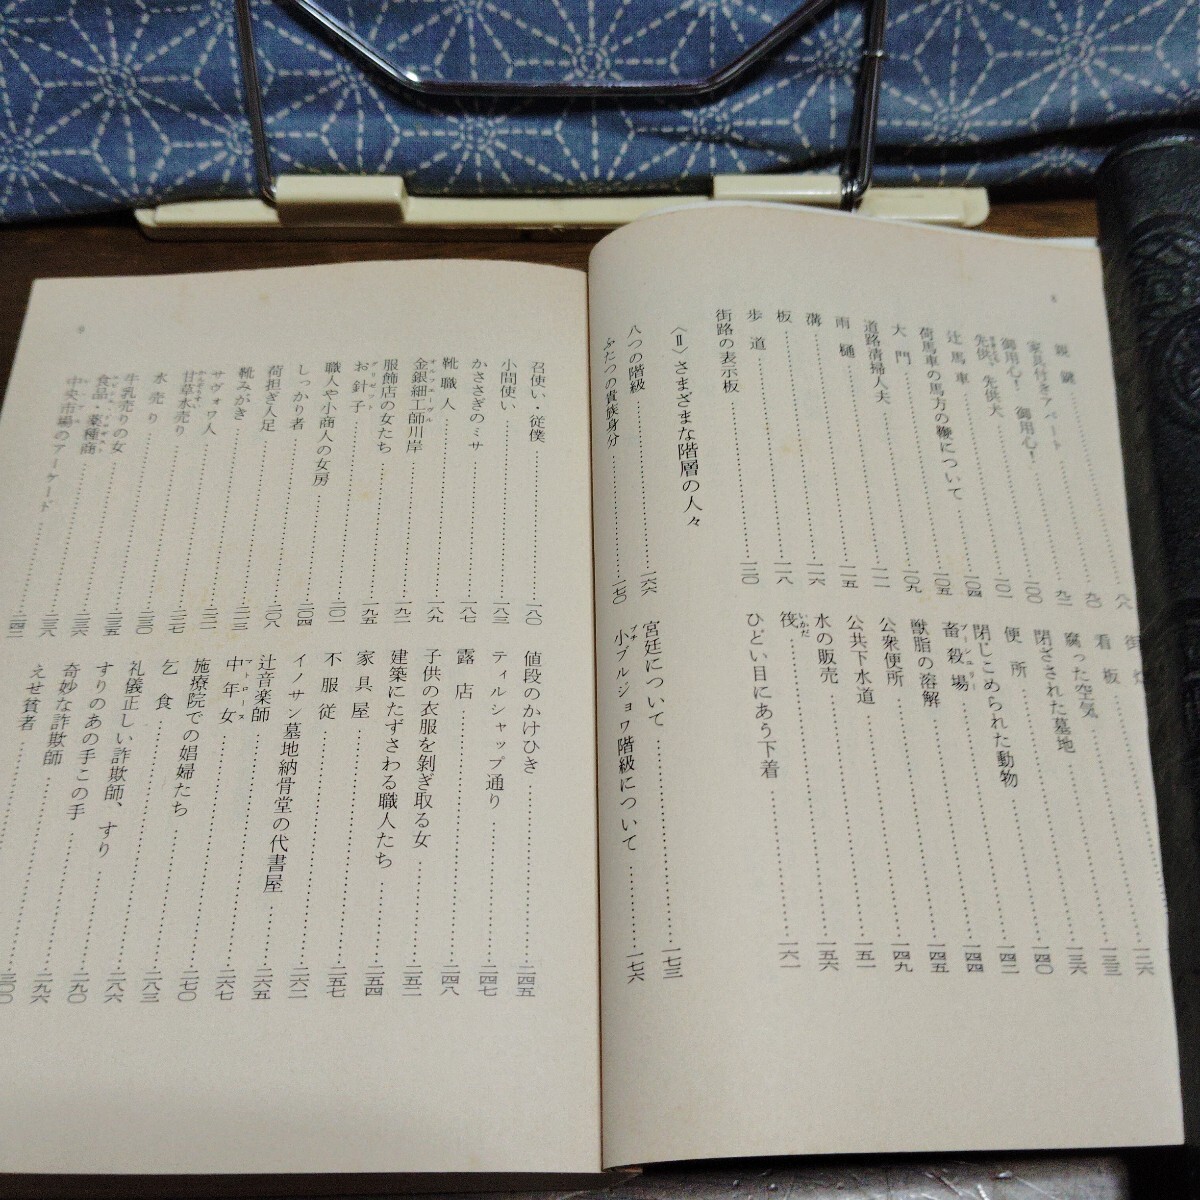 8
親鍵……八八
家具付きアパート……九〇
御用心！　御用心！……九二
先供、先供犬……一〇〇
辻馬車……一〇一
荷馬車の馬方の鞭について……一〇四
大門……一〇五
道路清掃人夫……一〇九
雨樋……一一一
溝……一一五
板……一一六
歩道……一一八
街路の表示板……一二〇
街灯……一二六
看板……一三三
腐った空気……一三六
閉ざされた墓地……一四〇
便所……一四二
閉じこめられた動物……一四四
畜殺場……一四五
獣脂の溶解……一四九
公衆便所……一五一
公共下水道……一五六
水の販売……一六一
筏
いかだ
ひどい目にあう下着
〈Ⅱ〉さまざまな階層の人々
八つの階級……一六六
ふたつの貴族身分……一七〇
宮廷について……一七三
小ブルジョワ階級について……一七六
プチ
9
召使い・従僕……一八〇
小間使い……一八三
かささぎのミサ……一八七
靴職人……一八九
金銀細工師川岸……一九二
オルフェーヴル
服飾店の女たち……一九五
お針子……二〇一
グリゼット
職人や小商人の女房……二〇四
しっかり者……二〇八
荷担ぎ人足……二二三
靴みがき……二二二
サヴォワ人……二二七
甘草水売り……二三〇
水売り……二三五
牛乳売りの女……二三六
食品・薬種商……二三八
中央市場のアーケード……二四二
値段のかけひき……二四五
ティルシャップ通り……二四七
露店……二四八
子供の衣服を剝ぎ取る女……二五二
建築にたずさわる職人たち……二五四
家具屋……二五七
不服従……二六二
イノサン墓地納骨堂の代書屋……二六五
辻音楽師……二六七
中年女……二七〇
マトローヌ
施療院での娼婦たち……二八三
乞食……二八六
礼儀正しい詐欺師、すり……二九〇
すりのあの手この手……二九六
奇妙な詐欺師……三〇〇
えせ貧者